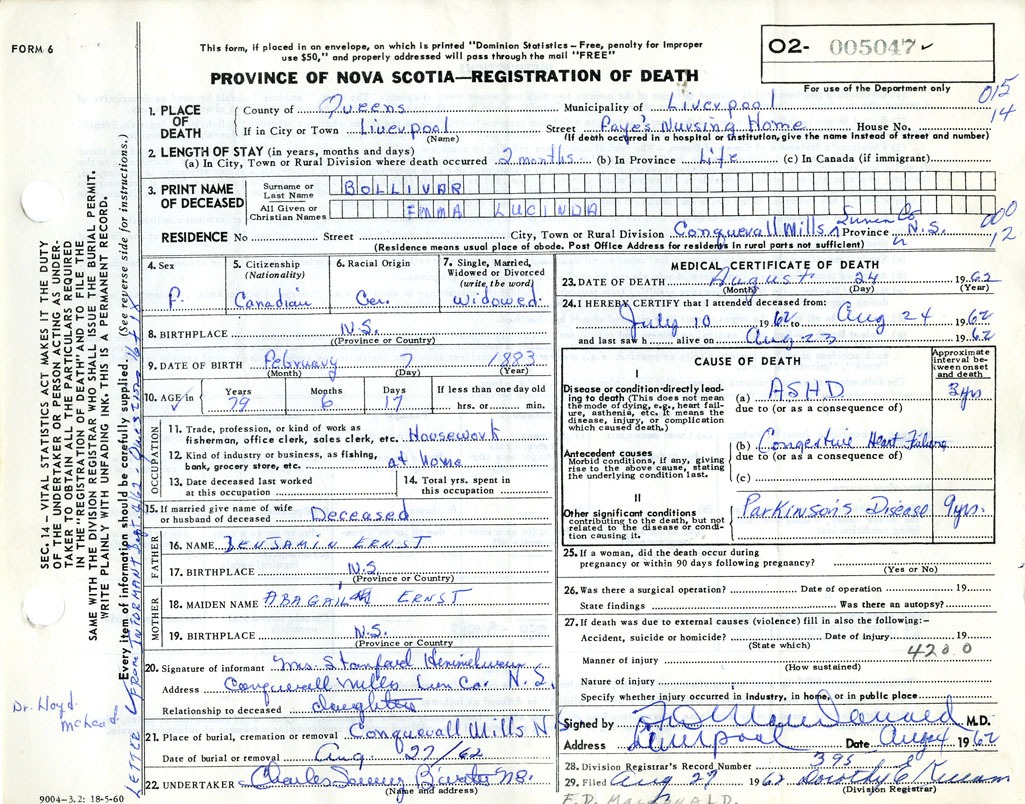 FORM 6
This form, if placed in an envelope, on which is printed "Dominion Statistics – Free, penalty for improper
use $50," and properly addressed will pass through the mail "FREE"
O2- 005047 ✓
PROVINCE OF NOVA SCOTIA—REGISTRATION OF DEATH
For use of the Department only
015
14
1. PLACE OF DEATH
County of Queens Municipality of Liverpool
If in City or Town Liverpool Street Faye's Nursing Home House No.
(Name) (If death occurred in a hospital or institution, give the name instead of street and number)
2. LENGTH OF STAY (in years, months and days)
(a) In City, Town or Rural Division where death occurred 2 months (b) In Province Life (c) In Canada (if immigrant)
3. PRINT NAME OF DECEASED
Surname or Last Name BOLLIVAR
All Given or Christian Names EMMA LUCINDA
RESIDENCE No Street City, Town or Rural Division Conquerall Mills Lunen Co. Province N.S.
000
12
(Residence means usual place of abode. Post Office Address for residents in rural parts not sufficient)
4. Sex F.
5. Citizenship (Nationality) Canadian
6. Racial Origin Ger.
7. Single, Married, Widowed or Divorced (write, the word) Widowed
8. BIRTHPLACE N.S.
(Province or Country)
9. DATE OF BIRTH February 7 1883
(Month) (Day) (Year)
10. AGE in ✓ Years 79 Months 6 Days 17 If less than one day old
hrs. or min.
OCCUPATION
11. Trade, profession, or kind of work as
fisherman, office clerk, sales clerk, etc. Housework
12. Kind of industry or business, as fishing,
bank, grocery store, etc. at Home
13. Date deceased last worked
at this occupation
14. Total yrs. spent in
this occupation
15. If married give name of wife
or husband of deceased Deceased
FATHER
16. NAME BENJAMIN ERNST
17. BIRTHPLACE N.S.
(Province or Country)
MOTHER
18. MAIDEN NAME ABAGAIL ERNST
19. BIRTHPLACE N.S.
(Province or Country)
20. Signature of informant Mrs
Address Conquerall Mills Lun Co. N.S.
Relationship to deceased daughter
21. Place of burial, cremation or removal Conquerall Mills N.S.
Date of burial or removal Aug 27/62
22. UNDERTAKER Charles
(Name and address)
9004–3.2: 18-5-60
MEDICAL CERTIFICATE OF DEATH
23. DATE OF DEATH August 24 1962
(Month) (Day) (Year)
24. I HEREBY CERTIFY that I attended deceased from:
July 10 1962 to Aug 24 1962
and last saw h alive on Aug 23 1962
CAUSE OF DEATH
Approximate interval between onset and death
I
Disease or condition directly leading to death (This does not mean
the mode of dying, e.g., heart failure, asthenia, etc. It means the
disease, injury, or complication
which caused death.)
(a) ASHD 3 yrs
due to (or as a consequence of)
Antecedent causes
Morbid conditions, if any, giving
rise to the above cause, stating
the underlying condition last.
(b) Congestive Heart Failure
due to (or as a consequence of)
(c)
II
Other significant conditions
contributing to the death, but not
related to the disease or condition causing it.
Parkinson's Disease 9 yrs.
25. If a woman, did the death occur during
pregnancy or within 90 days following pregnancy?
(Yes or No)
26. Was there a surgical operation? Date of operation 19
State findings Was there an autopsy?
27. If death was due to external causes (violence) fill in also the following:-
Accident, suicide or homicide? Date of injury 19
(State which)
420.0
Manner of injury
(How sustained)
Nature of injury
Specify whether injury occurred in industry, in home, or in public place
Signed by F D MacDonald M.D.
Address Liverpool Date Aug 24 1962
28. Division Registrar's Record Number 395
29. Filed Aug 27 1962 Dorothy E Killam
(Division Registrar)
F. D. MACDONALD.
SEC. 14 – VITAL STATISTICS ACT MAKES IT THE DUTY
OF THE UNDERTAKER OR PERSON ACTING AS UNDERTAKER TO OBTAIN ALL THE PARTICULARS REQUIRED
IN THE "REGISTRATION OF DEATH" AND TO FILE THE
SAME WITH THE DIVISION REGISTRAR WHO SHALL ISSUE THE BURIAL PERMIT.
WRITE PLAINLY WITH UNFADING INK. THIS IS A PERMANENT RECORD.
Every item of information should be carefully supplied. (See reverse side for instructions.)
LETTER FROM INFORMANT Sept 4/62 - Questions 16 + 18
Dr. Lloyd McLeod